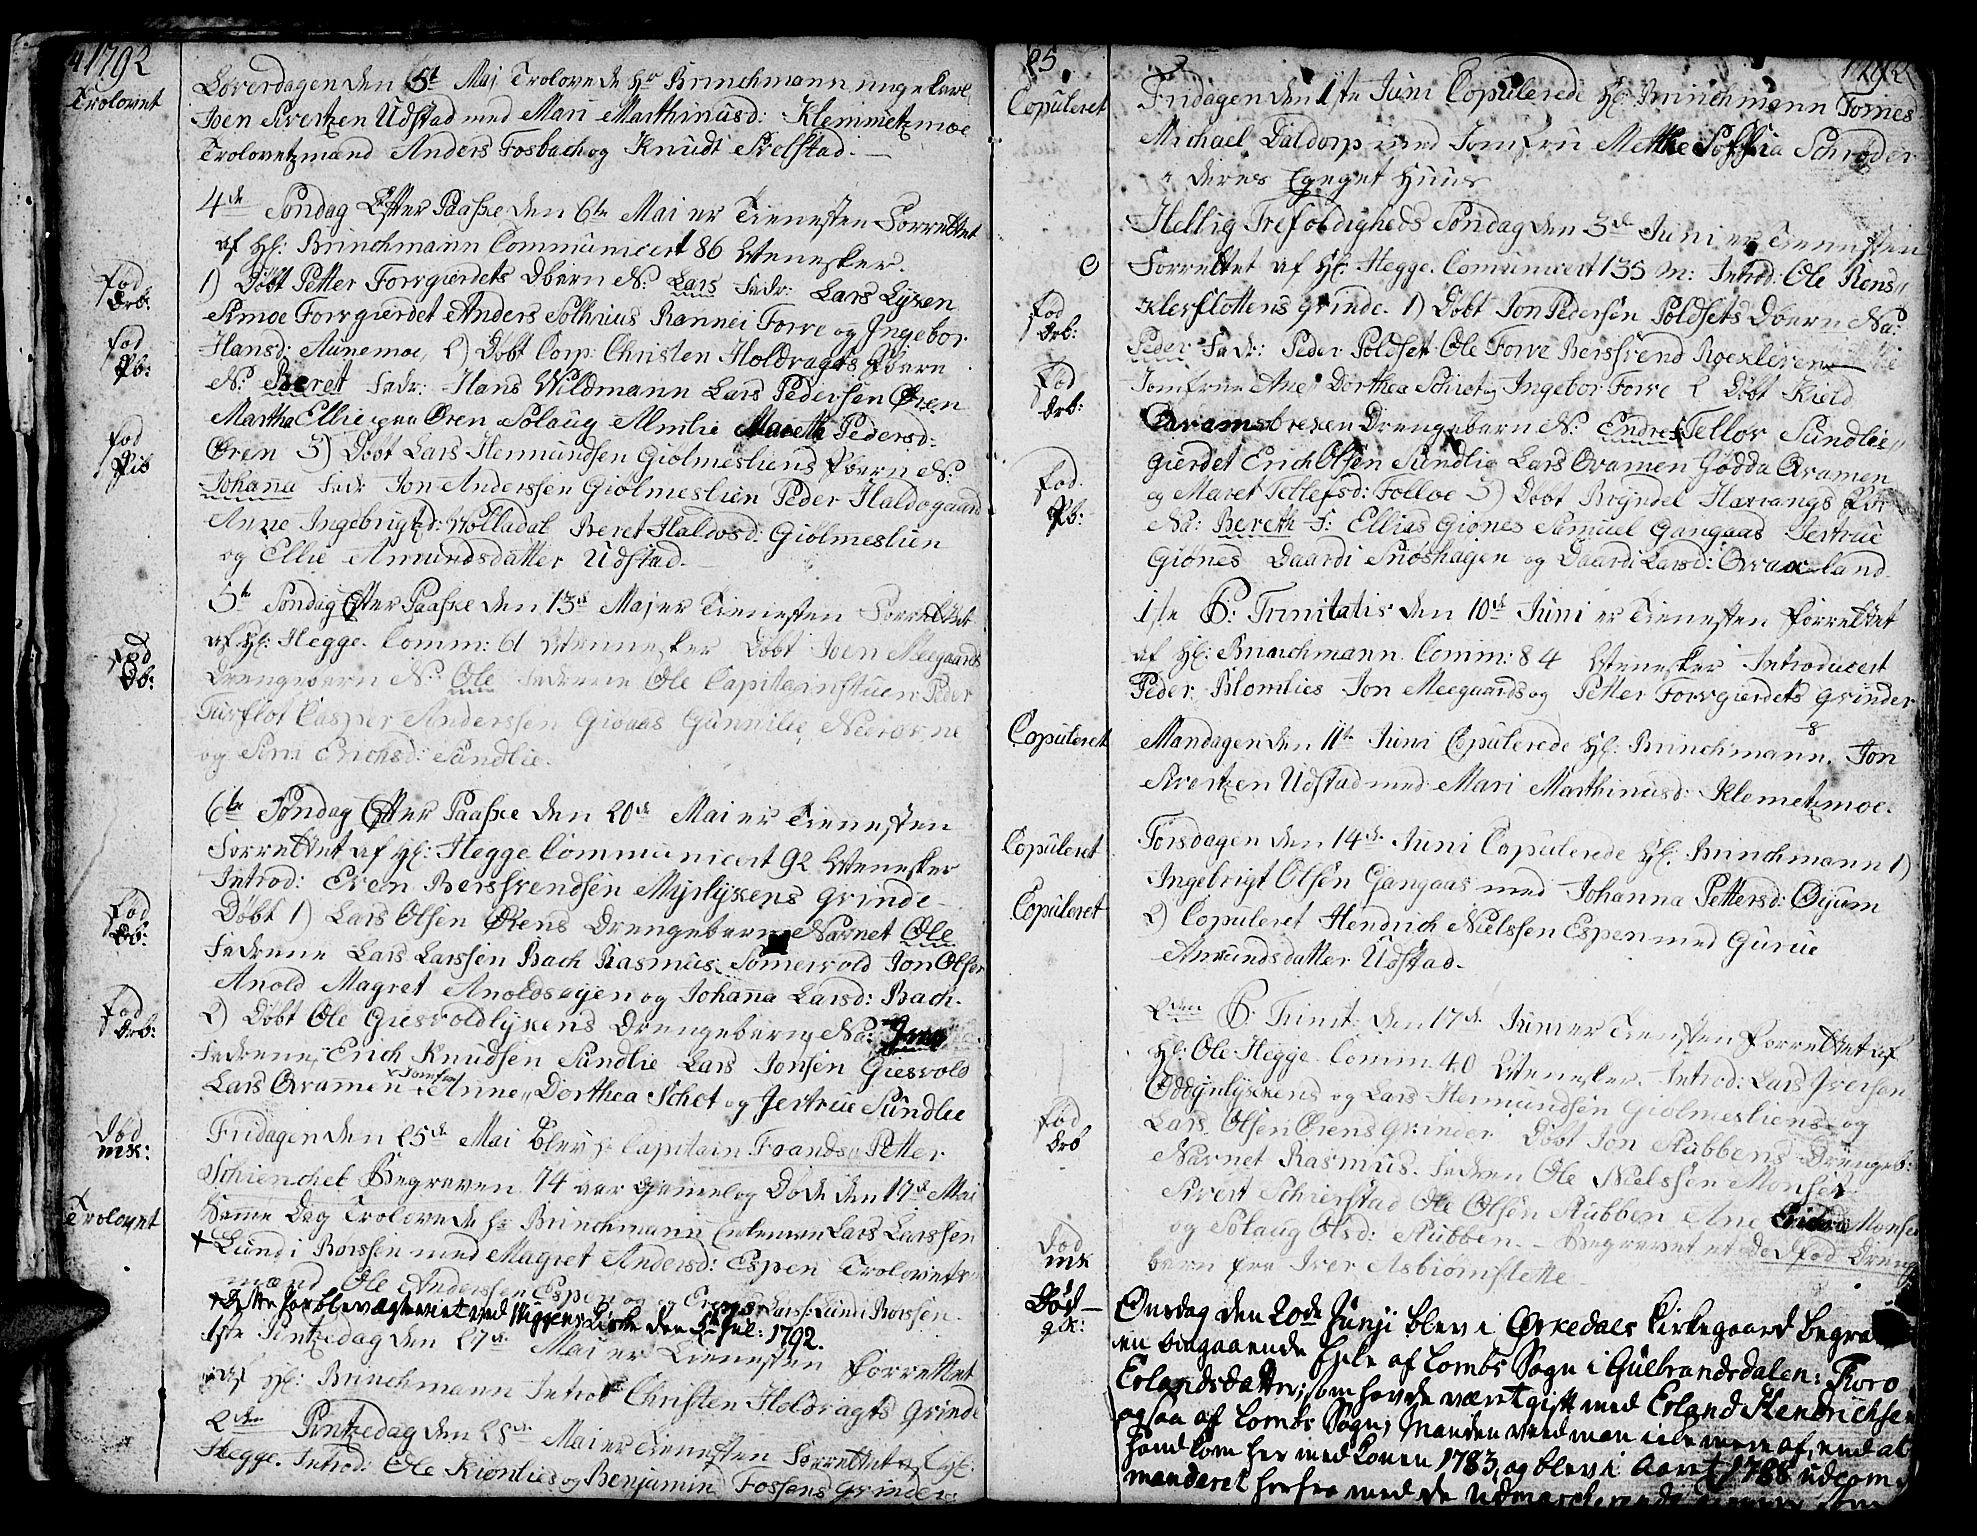 4 1792
Trolovet
Løverdagen den 5t Mai Trolovede Hr Brinchmann unge karl
Joen Sivertzen Udstad med Mari Marthinusd: Klemmetzmoe
Trolovetzmænd Anders Fosbach og Knudt Skelstad. —
4de Søndag Efter Paaske den 6te Mai er Tienesten Forrettet
af Hl: Brinchmann Communicert 86 Mennesker.
fød
Drb:
1) Døbt Petter Forrgierdets Dbern N: Lars Fadr: Lars Lyken
Simoe Forrgierdet Anders Solhuus Rannei Forre og Ingebor
fød
Pb:
Hansd: Aunemoe, 2) Døbt Corp: Christen Holdragets Pbern
N: Beret Fadr: Hans Wildmann Lars Pedersen Øren
Martha Ellie paa Øren Solaug Almlie Mareth Pedersd:
fød
Pib
Øren 3) Døbt Lars Hemundsen Giølmesliens Pbern N:
Johanna Fadr Jon Anderssen Giølmeslien Peder Haldogaard
Anne Ingebrigtzd: Wolladal Beret Haldosd: Giølmeslien
og Ellie Amundsdatter Udstad. —
5te Søndag Efter Paaske den 13de Mai er Tienesten Forrettet
af Hl: Hegge. Comm: 61 Mennesker Døbt Joen Meegaards
fød
Db:
Drengebern N: Ole Faderne Ole Capitteinstuen Peder
Turflot Casper Anderssen Gionas Gunnilie Neerørne
og Siri Erichsd: Sundlie.
6te Søndag Efter Paaske den 20de Mai er Tienesten
Forrettet af Hl: Hegge Communicert 92 Mennesker
Introd: Even Bersvendsen Myrlykens grinde —
fød
Db:
Døbt 1) Lars Olsen Ørens Drengebern Navnet Ole
Faderne Lars Larssen Bach Rasmus Somervold Jon Olsen
Anold Magret Anoldsøyen og Johanna Larsd: Bach.
fød
Drb:
2) Døbt Ole Giesvoldlykens Drengebern Na:
Faderne Erich Knudsen Sundlie Lars Jonsen Giesvold
Lars Qvamen Jomfru Anne Dorthea Schot og Jertrue Sundlie
Død
mk:
Fridagen den 25de Mai Blev Hr Capitain Frands Petter
Schienchel Begraven 74 aar gamel og Døde den 17de Mai
Trolovet
Samme Dag Trolovede Hr Brinchmann Enkeman Lars Larssen
+ Lund i Børssen med Magret Andersd: Espen Trolovetz
mænd Ole Anderssen Espen og Larsf: Lund i Børsen.
+ Dette Par blev ægteviet ved Viggens Kirke den 5te Jul: 1792.
1ste Pintzedag den 27de Mai er Tienesten Forrettet
af Hl: Brinchmann Introd: Christen Holdragets Grinde
2den Pintzedag den 28de Mai er Tienesten Forrettet af Hl:
Hegge. Introd: Ole Kiønlies og Benjamin Fossens Grinder.
85. 1792
Copuleret
Fridagen den 1ste Juni Copulerede Hl: Brinchmann
Michael Daldorp med Jomfru Mette Soffia Schrøder
i deres Egeget Huus
Hellig Trefoldigheds Søndag den 3de Juni er Tienesten
Forrettet af Hl: Hegge. Comunicert 135 M: Introd: Ole Rens
fød
Drb:
Klefslottens grinde. 1) Døbt Jon Pedersen Poldsets Dbern Na:
Peder Fadr: Peder Poldset Ole Forre Bersvend
fød
Drb:
Jomfrue Ane Dorthea Schiot og Ingebor Forre 2 Døbt Kield
Qvamsbrechen Drengebern N: Endre Tellov Sundlie
gierdet Erich Olsen Sundlie Lars Qvamen Gødda Qvamen
fød
Pb:
og Maret Tellefsd: Folloe 3) Døbt Bryndel Harvangs
Na: Bereth F: Ellias Giønes Samuel Gangaas Jertrue
Giønes Daardi Snoshagen og Daardi Larsd: Qvaaland.
1ste S: Trinitatis den 10de Juni er Tienesten forrettet
af Hl: Brinchmann. Comm: 84 Mennesker Introducert
Peder Blomlies Jon Meegaards og Petter Forrgierdets grinder
Copuleret
Mandagen den 11te Juni Copulerede Hl: Brinchmann. Jon
Sivertzen Udstad med Mari Marthinusd: Klemetzmoe.
Copuleret
Torsdagen den 14de Juni Copulerede Hl: Brinchmann 1)
Ingebrigt Olsen Gangaas med Johanna Pettersd: Øyum
Copuleret
2) Copuleret Hendrich Nielssen Espen med Gurue
Amundsdatter Udstad.
2den S: Trinit: den 17de Juni er Tienesten Forrettet af
Hl: Ole Hegge. Comm: 40 Mennesker. Introd: Lars Iversen
Oddynlykens og Lars Hemundsen Giølmesliens og
fød
Drb
Lars Olsen Ørens Grinder Døbt Jon Stubbens Drengeb:
Navnet Rasmus. Fadren Ole Nielssen Monset
Sivert Schierstad Ole Olsen Stubben Ane Monset
og Solaug Olsd: Stubben. — Begravet et Dødfød Drenge
Død
mk
bern fra Iver Asbiørnslette
Død —
qk:
Onsdag den 20de Junji blev i Ørkedals Kirkegaard begra
en omgaaende Fjele af Lombs Sogn i Gulbrandsdalen: Thoro
Erlandsdatter; som havde været gift med Erland Hendrichsen
ogsaa af Lombs Sogn, Manden veed man icke mere af, end at
hand kom her med Konen 1783, og blev i Aaret 1788 udcom
manderet herfra med de Udmarcherende